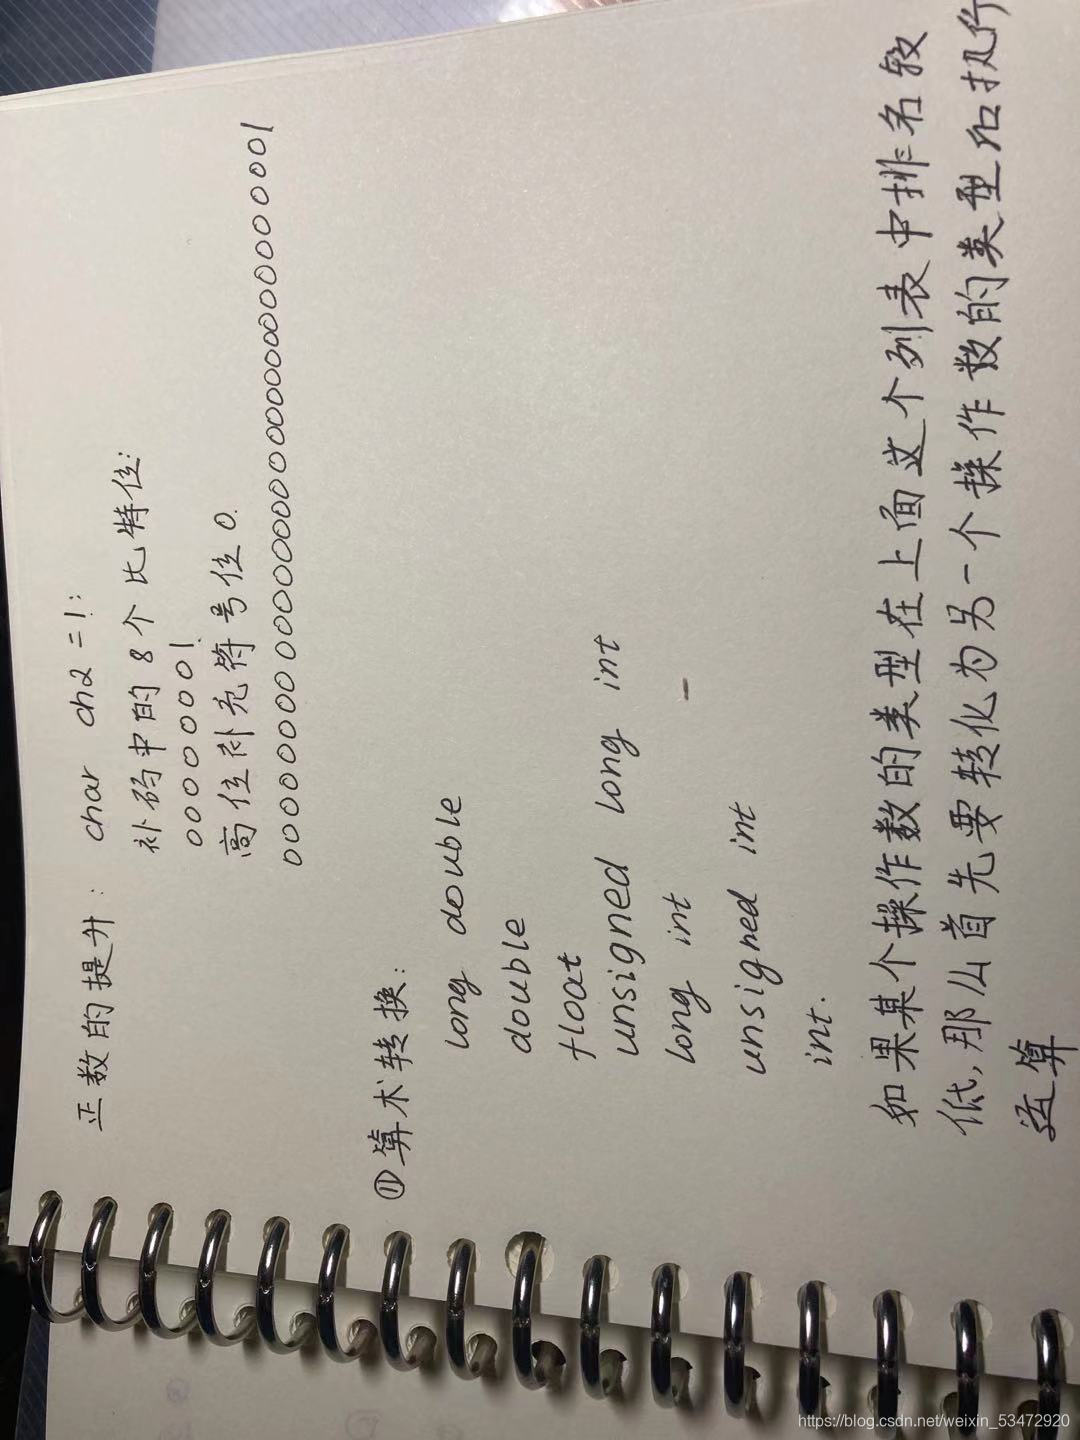 正数的提升: char ch2 = 1;
补码中的8个比特位:
00000001
高位补充符号位0.
00000000000000000000000000000001
⑪算术转换:
long double
double
float
unsigned long int
long int
unsigned int
int.
如果某个操作数的类型在上面这个列表中排名较
低,那么首先要转化为另一个操作数的类型后执行
运算
https://blog.csdn.net/weixin_53472920